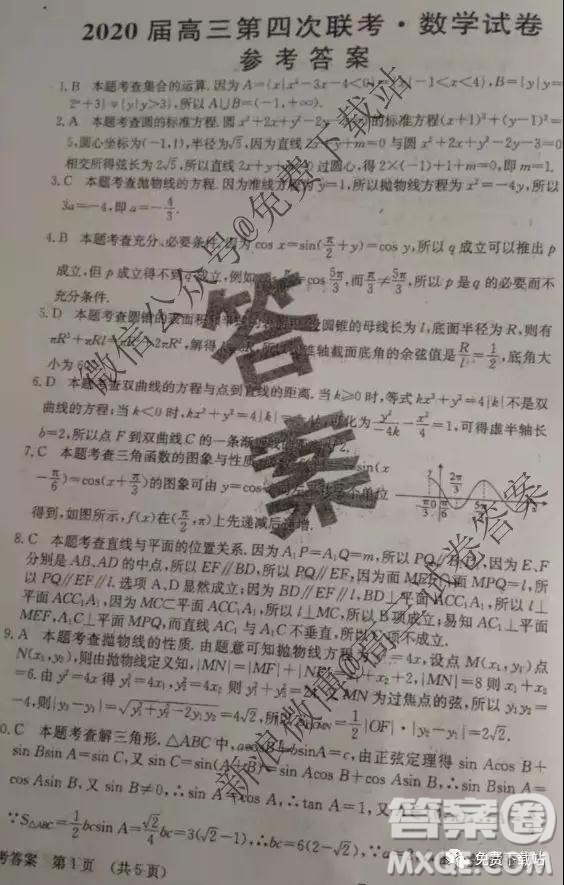 2020 届高三第四次联考·数学试卷
参考答案
1. B 本题考查集合的运算. 因为 A={x|x²-3x-4<0}={x|-1<x<4}, B={y|y=
2ˣ+3}={y|y>3}, 所以 A∪B=(-1,+∞).
2. A 本题考查圆的标准方程. 圆 x²+2x+y²-2y-3=0 的标准方程(x+1)²+(y-1)²=
5, 圆心坐标为(-1,1), 半径为√5, 因为直线 2x+y+m=0 与圆 x²+2x+y²-2y-3=0
相交所得弦长为 2√5, 所以直线 2x+y+m=0 过圆心, 得 2×(-1)+1+m=0, 即 m=1.
3. C 本题考查抛物线的方程. 因为准线方程为 y=1, 所以抛物线方程为 x²=-4y, 所以
3a=-4, 即 a=-4/3.
4. B 本题考查充分、必要条件. 因为 cos x=sin(π/2+y)=cos y, 所以 q 成立可以推出 p
成立, 但 p 成立得不到 q 成立, 例如 cos 5π/3, 而 π/3≠5π/3, 所以 p 是 q 的必要而不
充分条件.
5. D 本题考查圆锥的表面积 圆锥的母线长为 l, 底面半径为 R, 则有
πR²+πRl 2πR², 解得 圆锥轴截面底角的余弦值是 R/l=1/2, 底角大
小为 6
6. D 本题考查双曲线的方程与点到直线的距离. 当 k≥0 时, 等式 kx²+y²=4|k|不是双
曲线的方程; 当 k<0 时, kx²+y²=4|k| 可化为 y²/-4k - x²/4=1, 可得虚半轴长
b=2, 所以点 F 到双曲线 C 的一条渐
7. C 本题考查三角函数的图象与性质 sin(x
-π/6)=cos(x+π/3)的图象可由 y=cos 单位
得到, 如图所示, f(x)在(π/2,π)上先递减后递增.
8. C 本题考查直线与平面的位置关系. 因为 A₁P=A₁Q=m, 所以 PQ∥B₁D₁, 因为 E、F
分别是 AB、AD 的中点, 所以 EF∥BD, 所以 PQ∥EF, 因为面 MEF∩面 MPQ=l, 所
以 PQ∥EF∥l. 选项 A、D 显然成立; 因为 BD∥EF∥l, BD⊥平面 ACC₁A₁, 所以 l⊥
平面 ACC₁A₁, 因为 MC⊂平面 ACC₁A₁, 所以 l⊥MC, 所以 B 项成立; 易知 AC₁⊥平面
MEF, A₁C⊥平面 MPQ, 而直线 AC₁ 与 A₁C 不垂直, 所以 C 项不成立.
9. A 本题考查抛物线的性质. 由题意可知抛物线方程为 y²=4x, 设点 M(x₁,y₁) 点
N(x₂,y₂), 则由抛物线定义知, |MN|=|MF|+|NF| +x₂+2, |MN|=8 则 x₁+x₂
=6. 由 y²=4x 得 y₁²=4x₁, y₂²=4x₂ 则 y₁²+y₂²=24, MN 为过焦点的弦, 所以 y₁y₂=
-4, 则|y₂-y₁|=√(y₁²+y₂²-2y₁y₂)=4√2, 所以 =1/2|OF|·|y₂-y₁|=2√2.
0. C 本题考查解三角形. △ABC 中, acosB+bsinA=c, 由正弦定理得 sin Acos B+
sin Bsin A=sin C, 又 sin C=sin(A+B)=sin Acos B+cos Asin B, ∴sin Bsin A=
cos Asin B, 又 sin B≠0, ∴sin A=cos A, ∴tan A=1, 又
∵S△ABC=1/2 bcsin A=√2/4 bc=3(√2-1), ∴bc=6(2-√2),
考答案 第 1 页 (共 5 页)
答案
微信公众号@免费下载站
新浪微博@高三试卷答案
答案圈
免费下载站